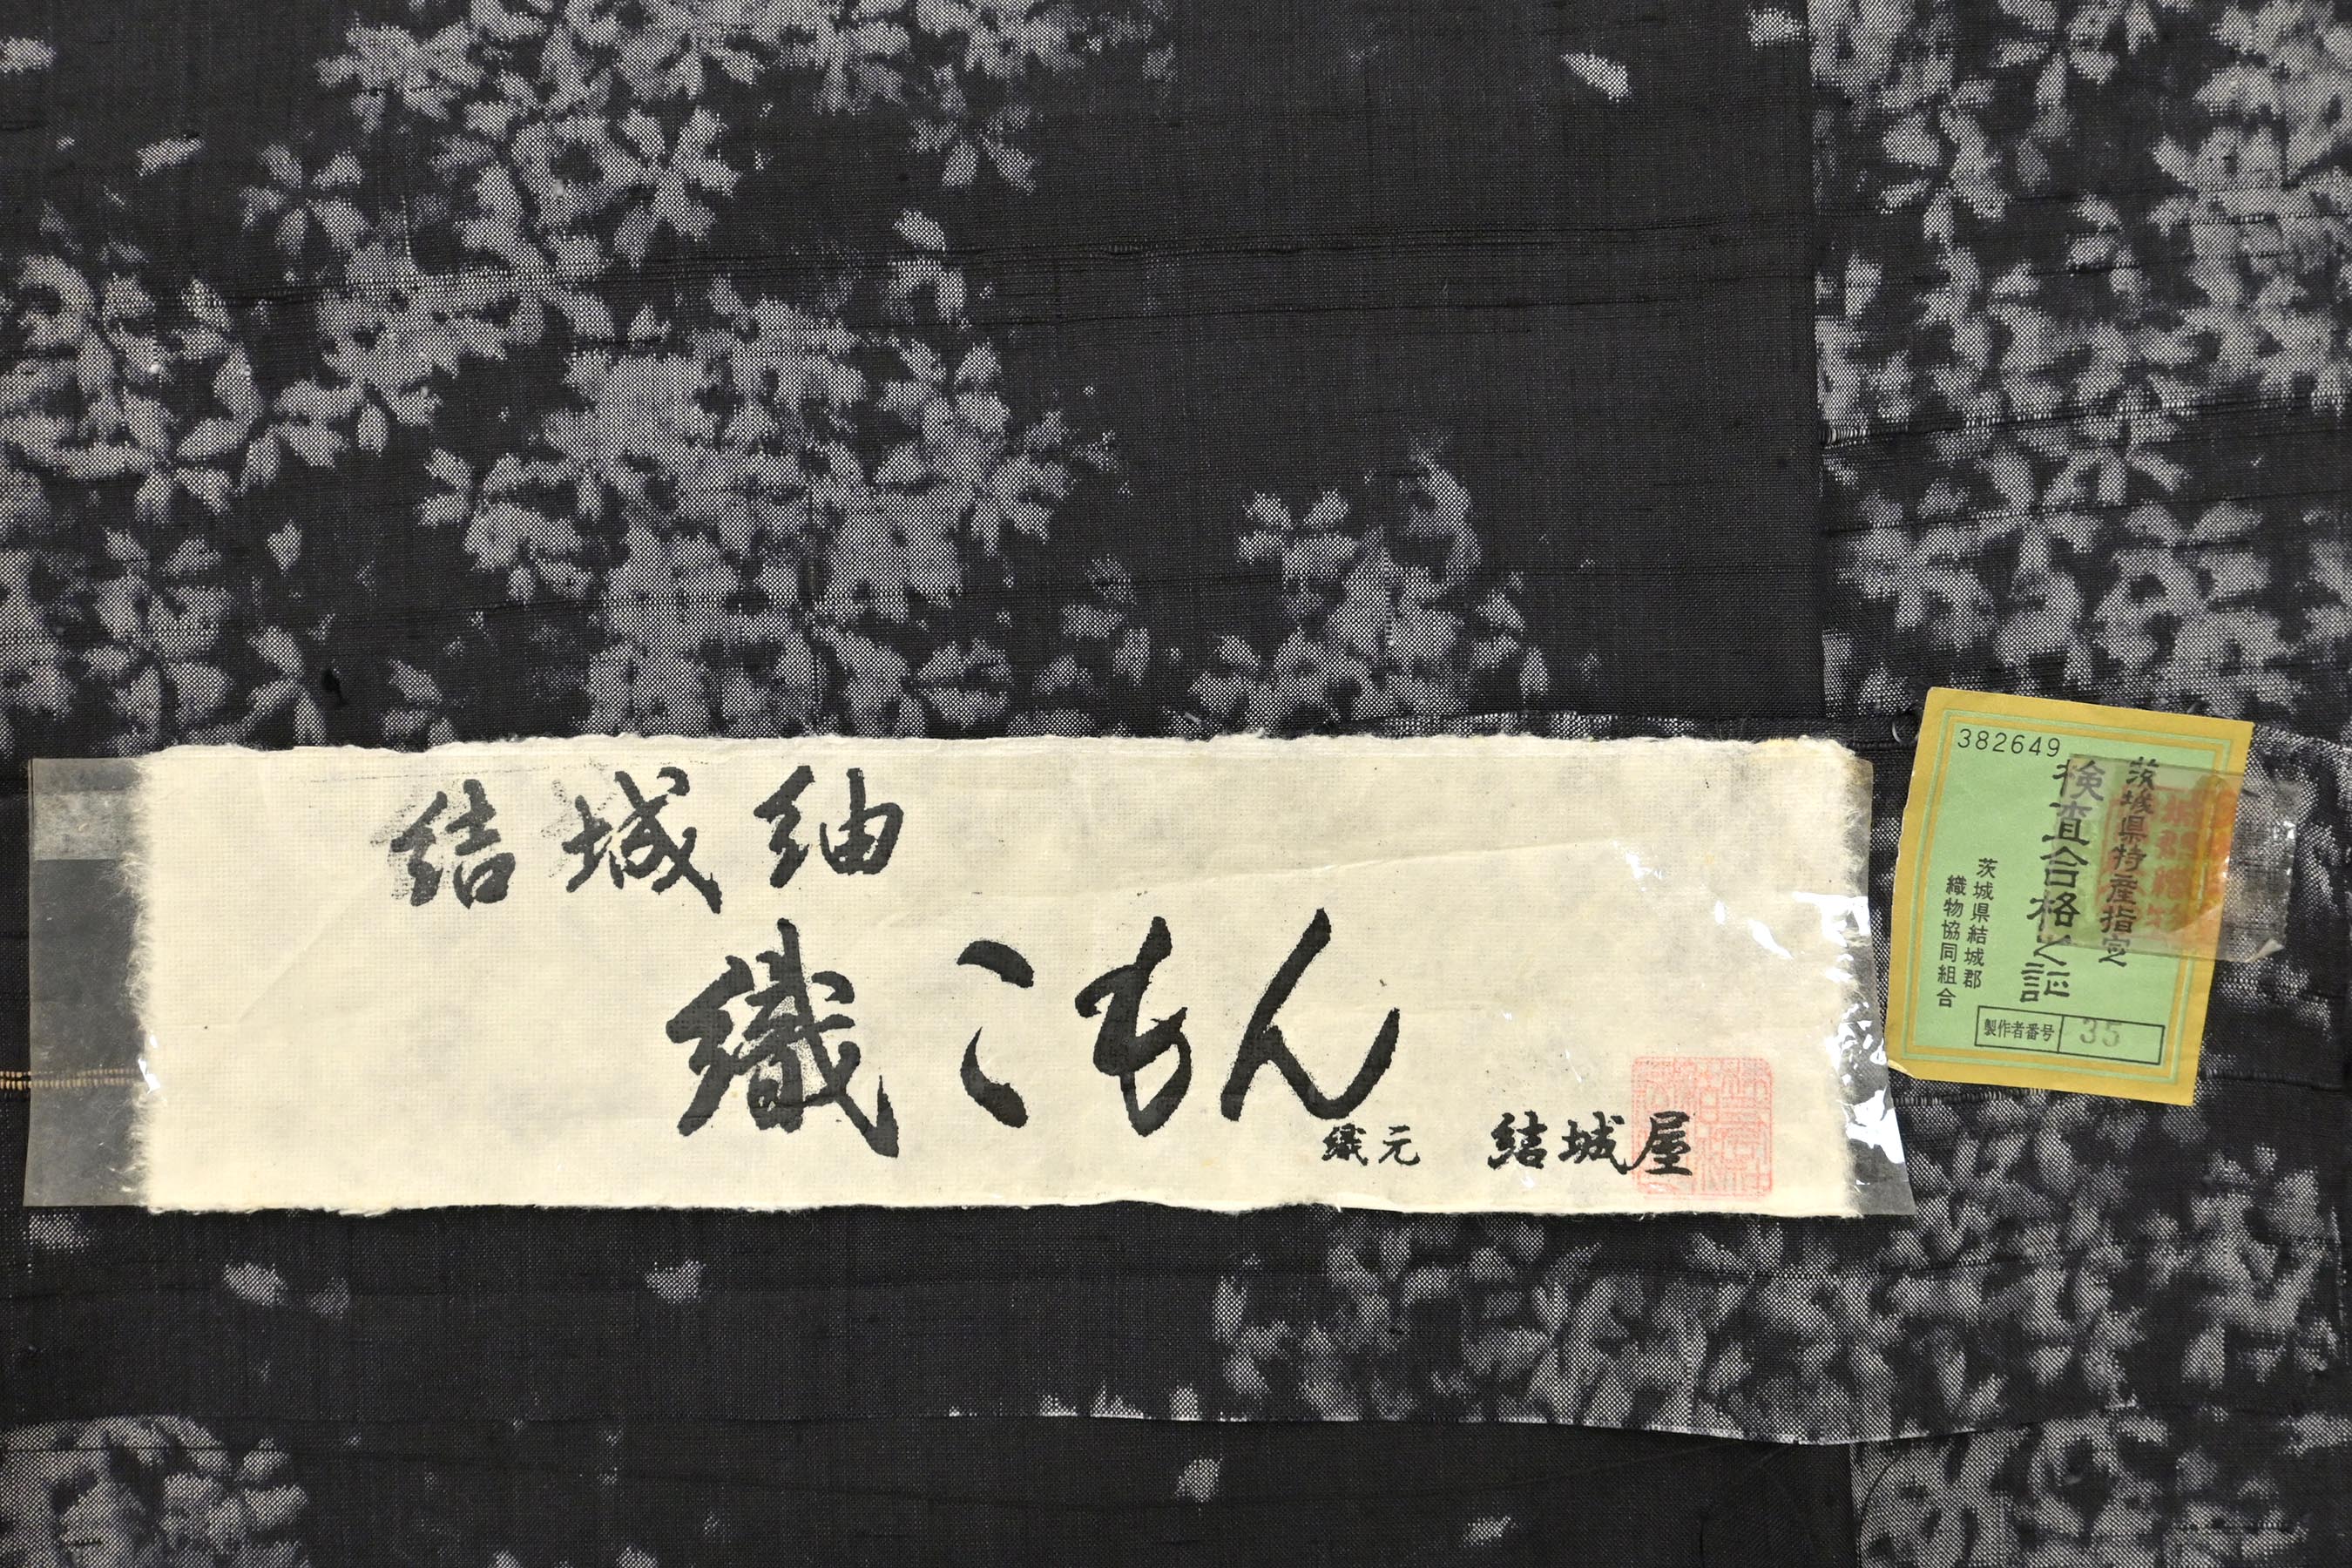 結城紬
織こもん
織元 結城屋
382649
茨城県特産指定
検査合格之証
茨城県結城郡
織物協同組合
製作者番号 35